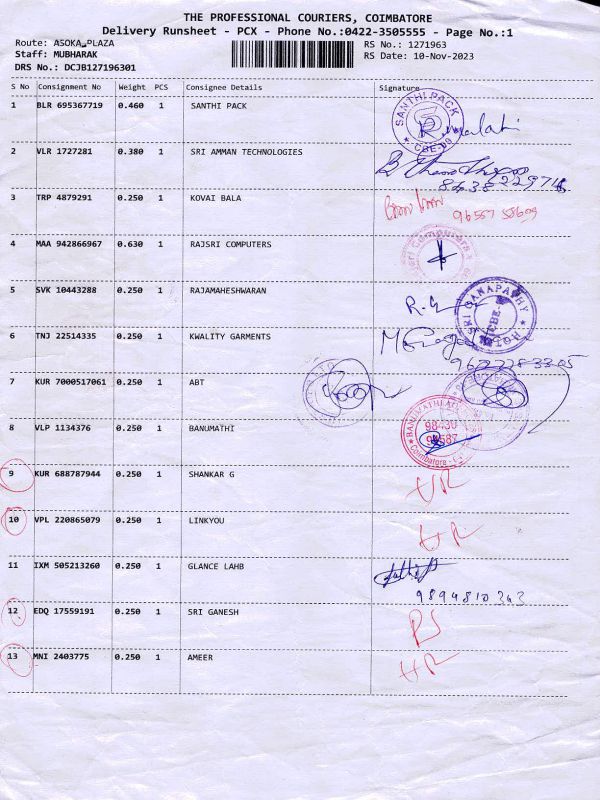 THE PROFESSIONAL COURIERS, COIMBATORE
Delivery Runsheet - PCX - Phone No.:0422-3505555 - Page No.:1
Route: ASOKA PLAZA
RS No.: 1271963
Staff: MUBHARAK
RS Date: 10-Nov-2023
DRS No.: DCJB127196301
S No Consignment No Weight PCS Consignee Details Signature
1 BLR 695367719 0.460 1 SANTHI PACK SANTHI PACK CBE-
2 VLR 1727281 0.380 1 SRI AMMAN TECHNOLOGIES
3 TRP 4879291 0.250 1 KOVAI BALA
4 MAA 942866967 0.630 1 RAJSRI COMPUTERS Computers
5 SVK 10443288 0.250 1 RAJAMAHESHWARAN SRI GANAPATHY CBE-
6 TNJ 22514335 0.250 1 KWALITY GARMENTS
7 KUR 7000517061 0.250 1 ABT
8 VLP 1134376 0.250 1 BANUMATHI BANUMATHI 98430 Coimbatore
9 KUR 688787944 0.250 1 SHANKAR G
10 VPL 220865079 0.250 1 LINKYOU
11 IXM 505213260 0.250 1 GLANCE LAHB
9894810343
12 EDQ 17559191 0.250 1 SRI GANESH
13 MNI 2403775 0.250 1 AMEER